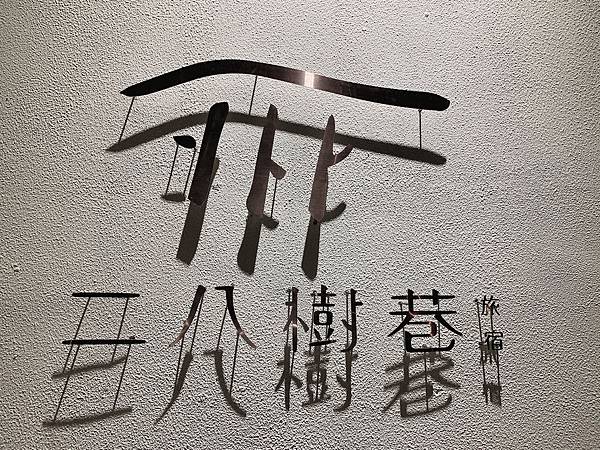 二八樹巷 旅宿